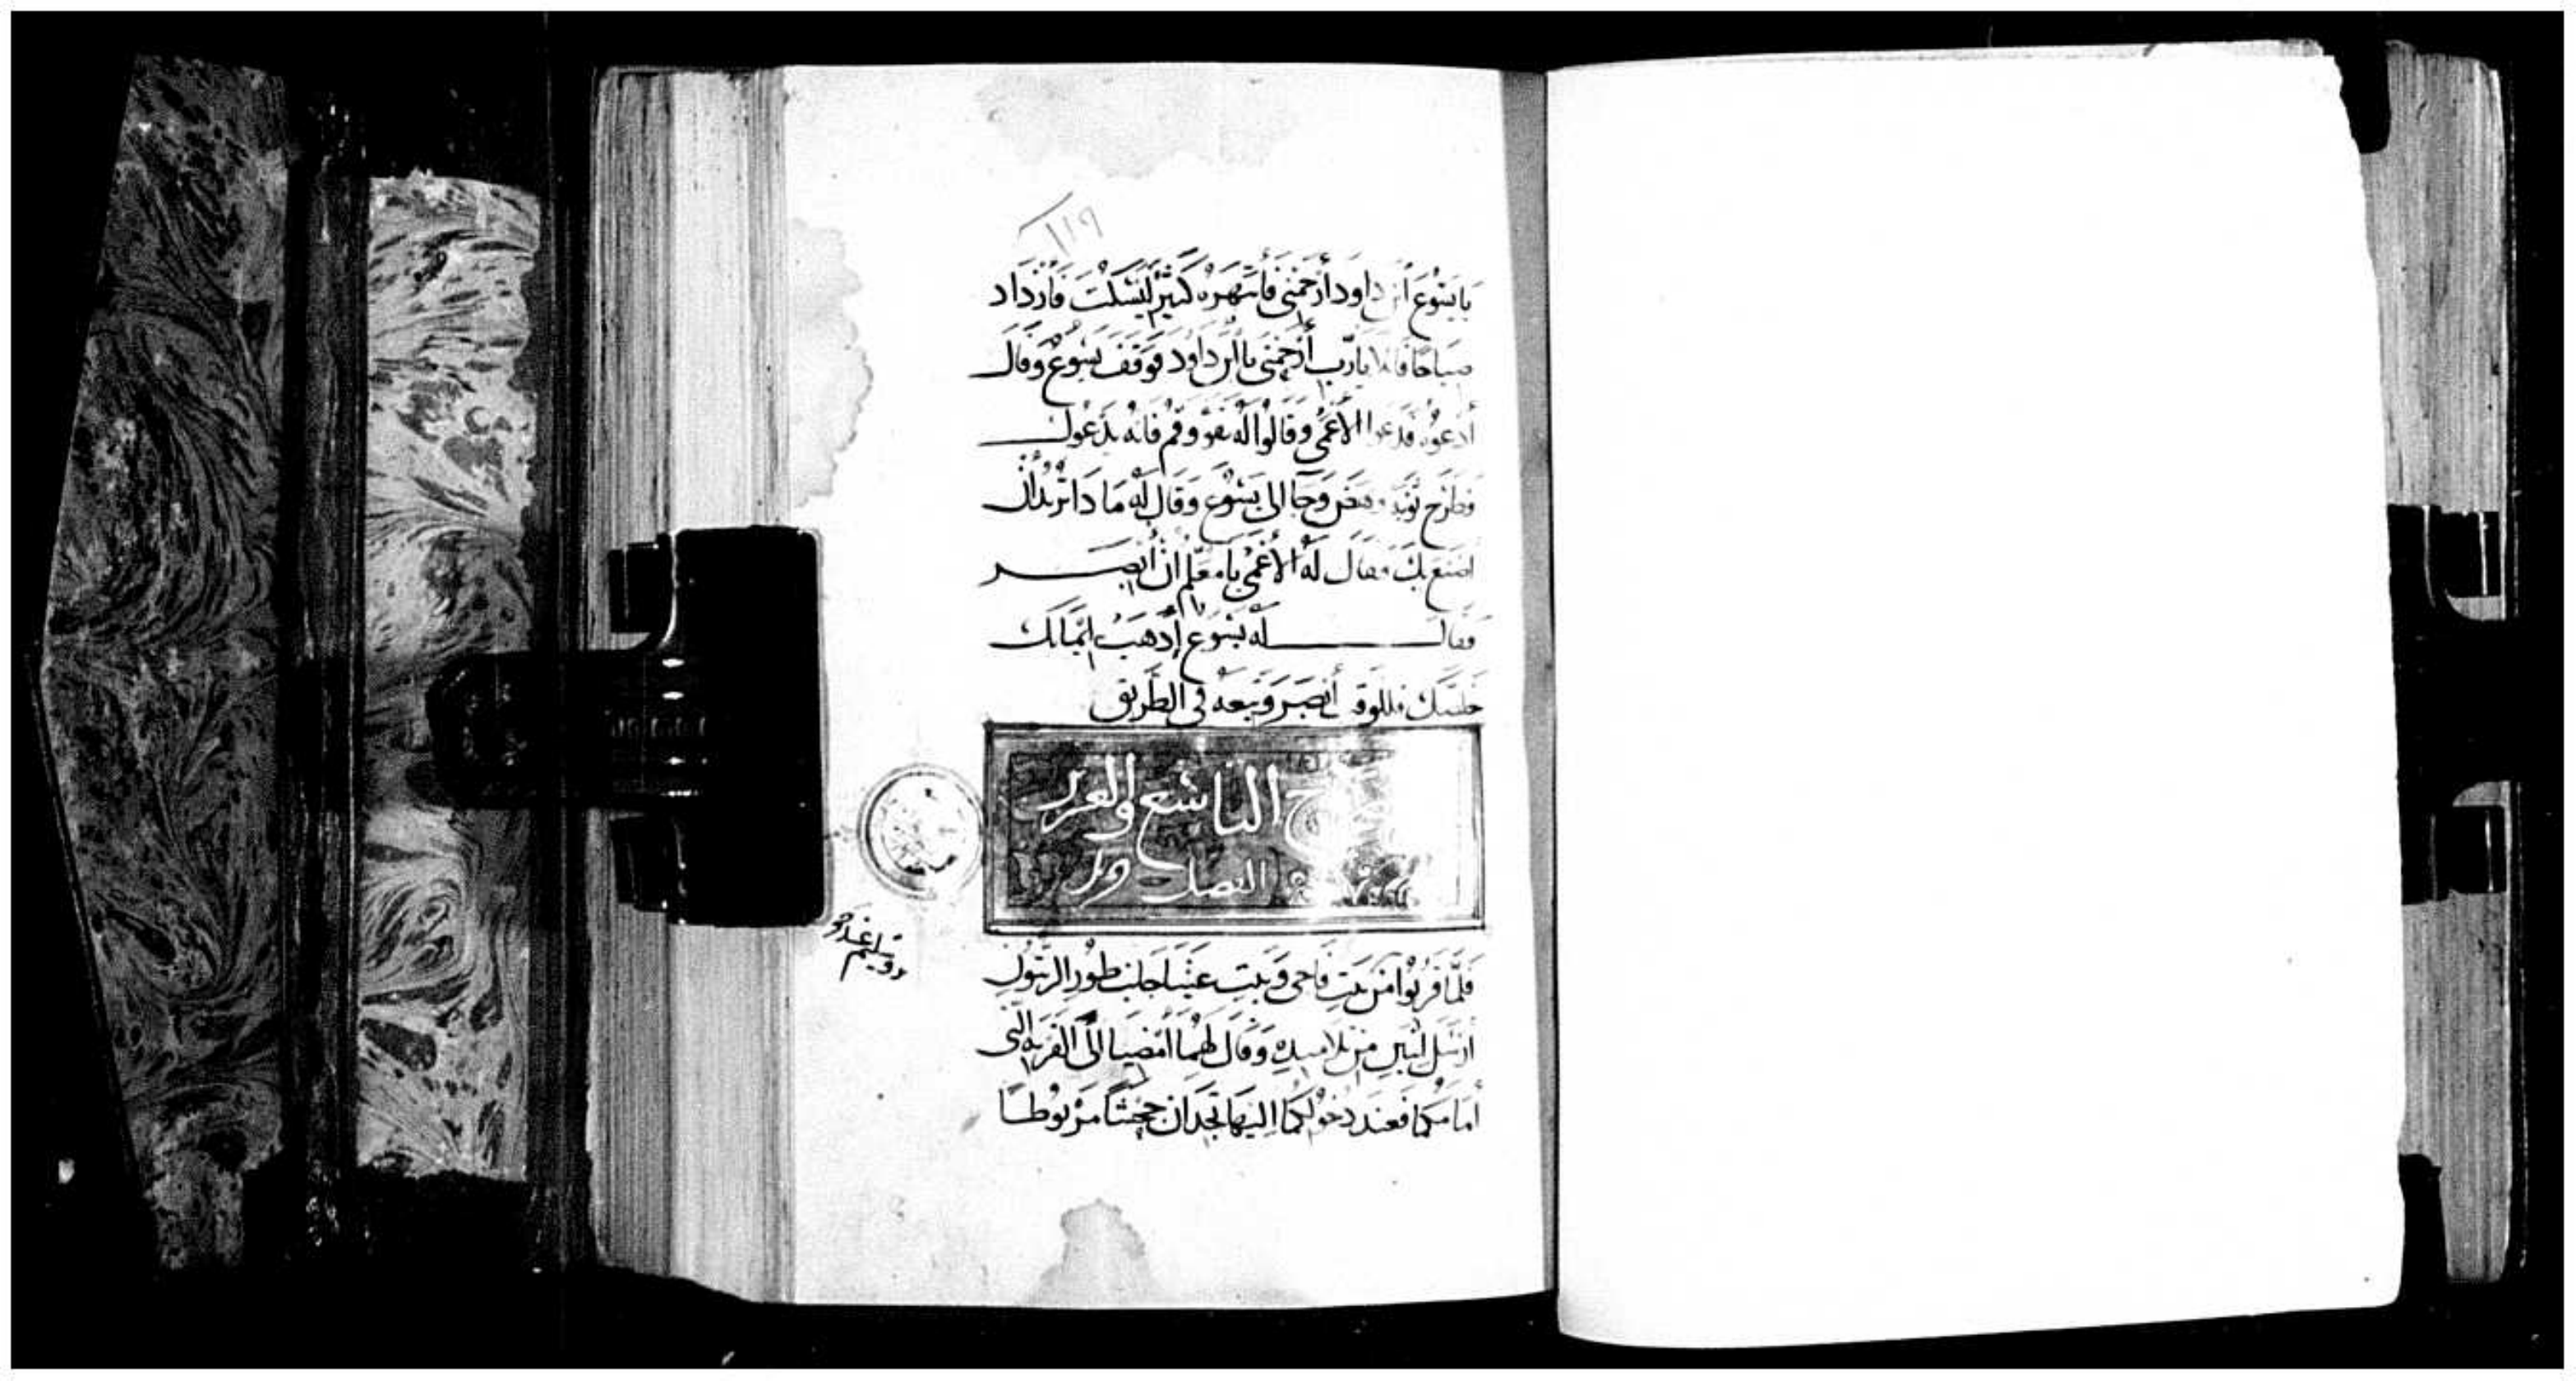 ١١٩
يا يسوع ابن داود أرحمني فأنتهره كثير ليسكت فازداد
صياحًا قايلا يا رب أرحمني يا ابن داود فوقف يسوع وقال
أدعوه فدعوا الأعمى وقالوا له ثق وقم فانه يدعوك
فطرح ثوبه ونهض وجا الى يسوع وقال له ما دا تريد أن
اصنع بك فقال له الأعمى يا معلم ان أبصر
فقال له يسوع أدهب ايمانك
خلصك فللوقت أبصر وتبعه في الطريق
الاصحاح التاسع والعشر
الفصل
فلما قربوا من بيت فاجي وبيت عنيا جانب طور الزيتون
أرسل اثنين من تلاميده وقال لهما امضيا الى القريه التي
أمامكما فعند دخولكما اليها تجدان جحشًا مربوطًا